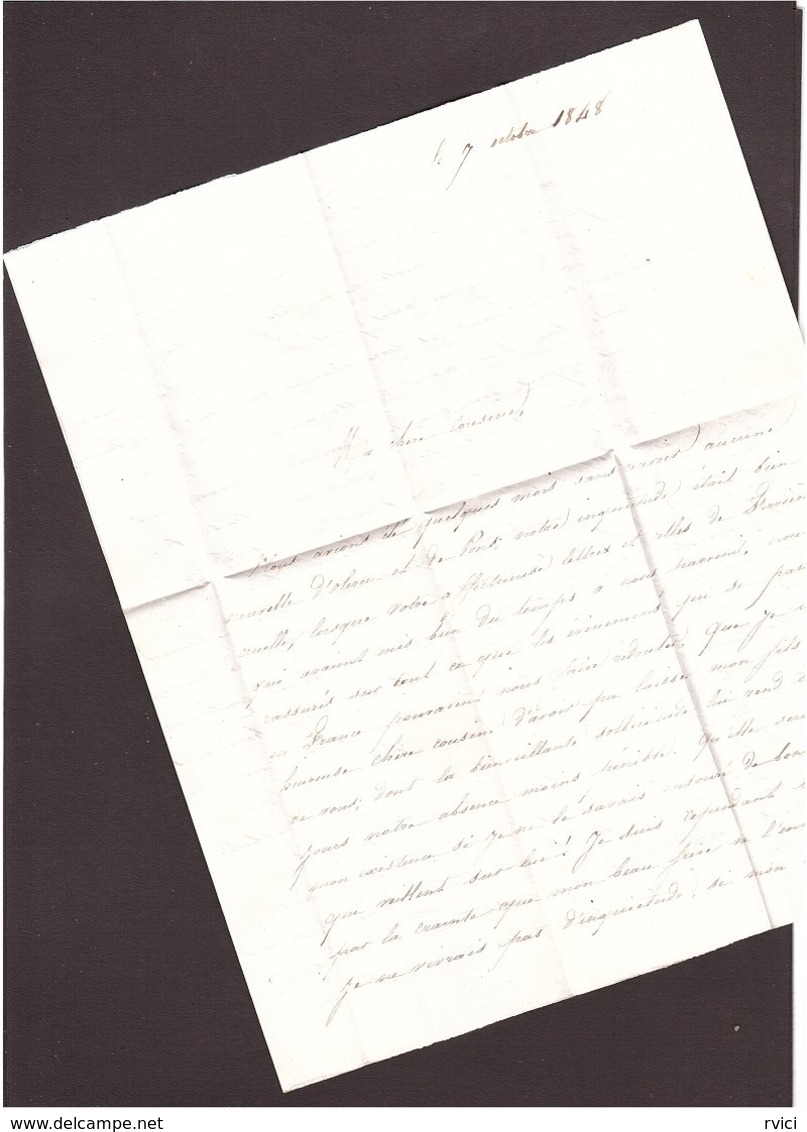 le 7 octobre 1848
Ma chère cousine,
Nous avions été quelques mois sans avoir aucune
nouvelle d'oleron et de Pont, notre inquietude était bien
cruelle, lorsque votre affectueuse lettre et celles de
qui avaient mis bien du temps a nous parvenir, nous
rassurés sur tout ce que les évènements qui se
en France pouvaient nous faire redouter, que je
heureuse chère cousine d'avoir pu laisser mon fils
de vous, dont la bienveillante sollicitude lui rend
jours notre absence moins pénible. qu'elle
mon existence si je ne le savais entouré de
qui veillent sur lui! Je suis cependant
par la crainte que mon beau frère ne
Je ne vivrais pas d'inquietude, si mon
www.delcampe.net
rvici